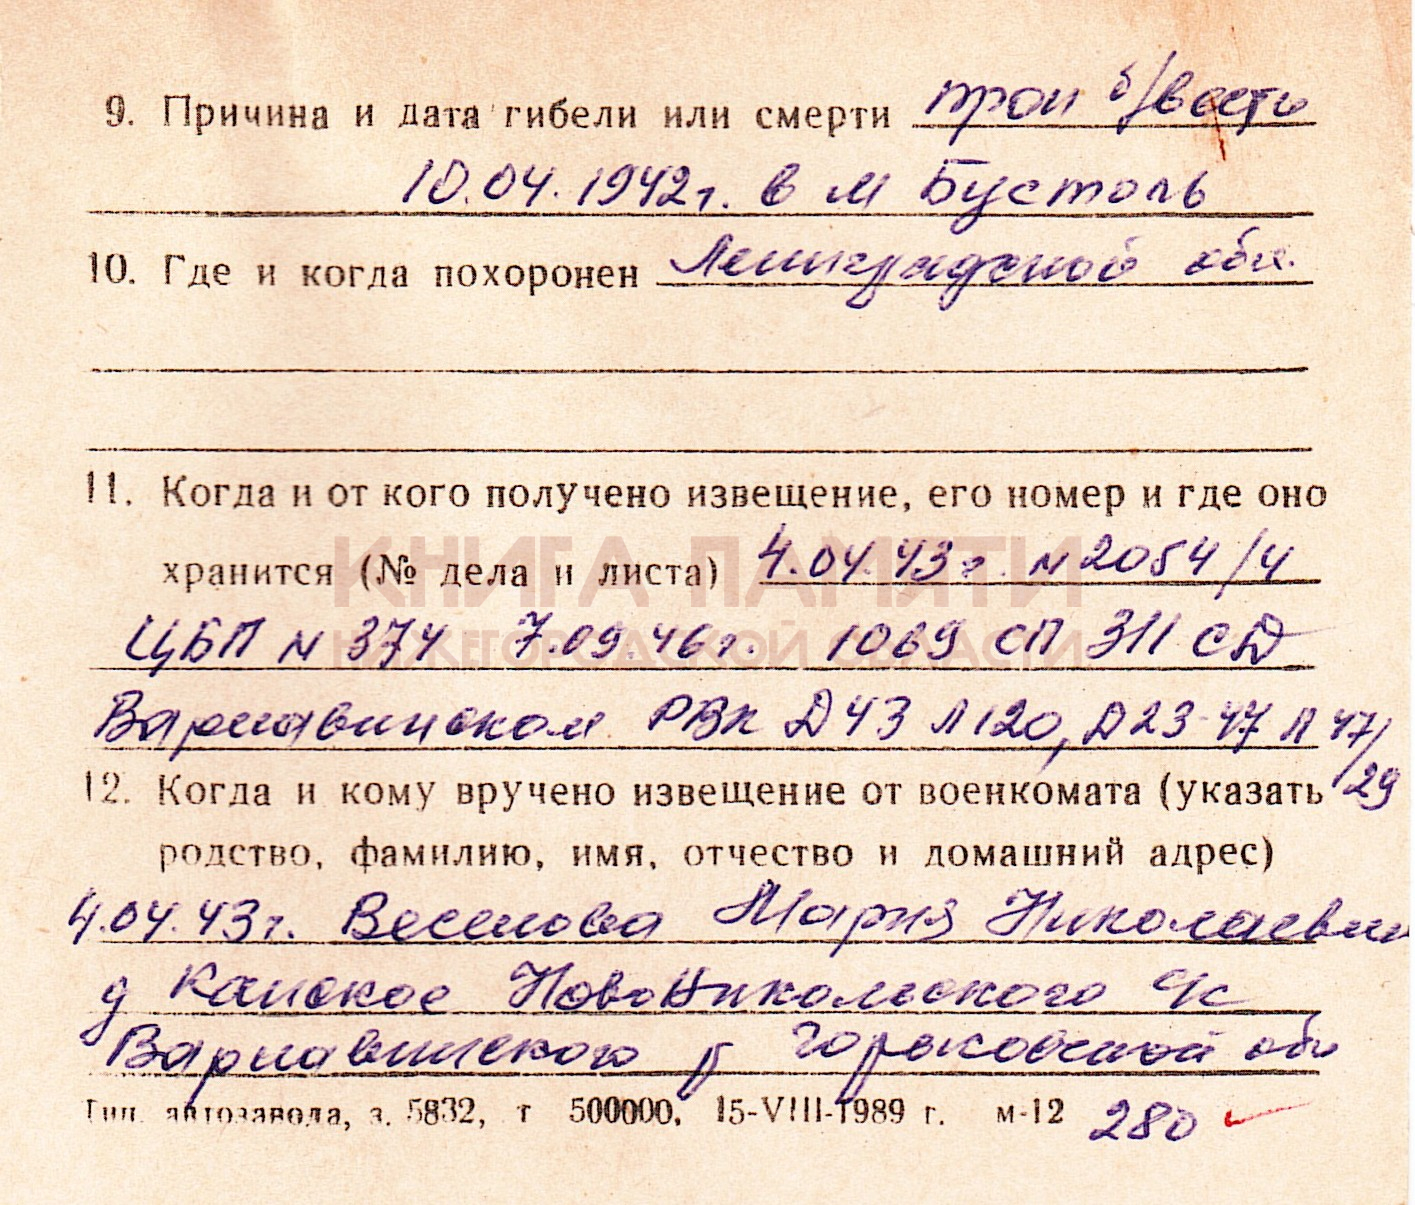 9. Причина и дата гибели или смерти проп б/вести
10.04.1942г. в м Бустоль
10. Где и когда похоронен Ленинградской обл.
11. Когда и от кого получено извещение, его номер и где оно
хранится (№ дела и листа) 4.04.43г. N 2054/4
КНИГА ПАМЯТИ
ЦБП N 374 7.09.46г. 1069 СП 311 СД
НИЖЕГОРОДСКОЙ ОБЛАСТИ
Варнавинском РВК Д 43 Л 120, Д 23-47 Л 47/
29
12. Когда и кому вручено извещение от военкомата (указать
родство, фамилию, имя, отчество и домашний адрес)
4.04.43г. Веселова Мария Николаевн
д Канское НовоНикольского с/с
Варнавинского р Горьковской обл
Тип. автозавода, з. 5832, т 500000, 15-VIII-1989 г. м-12 280